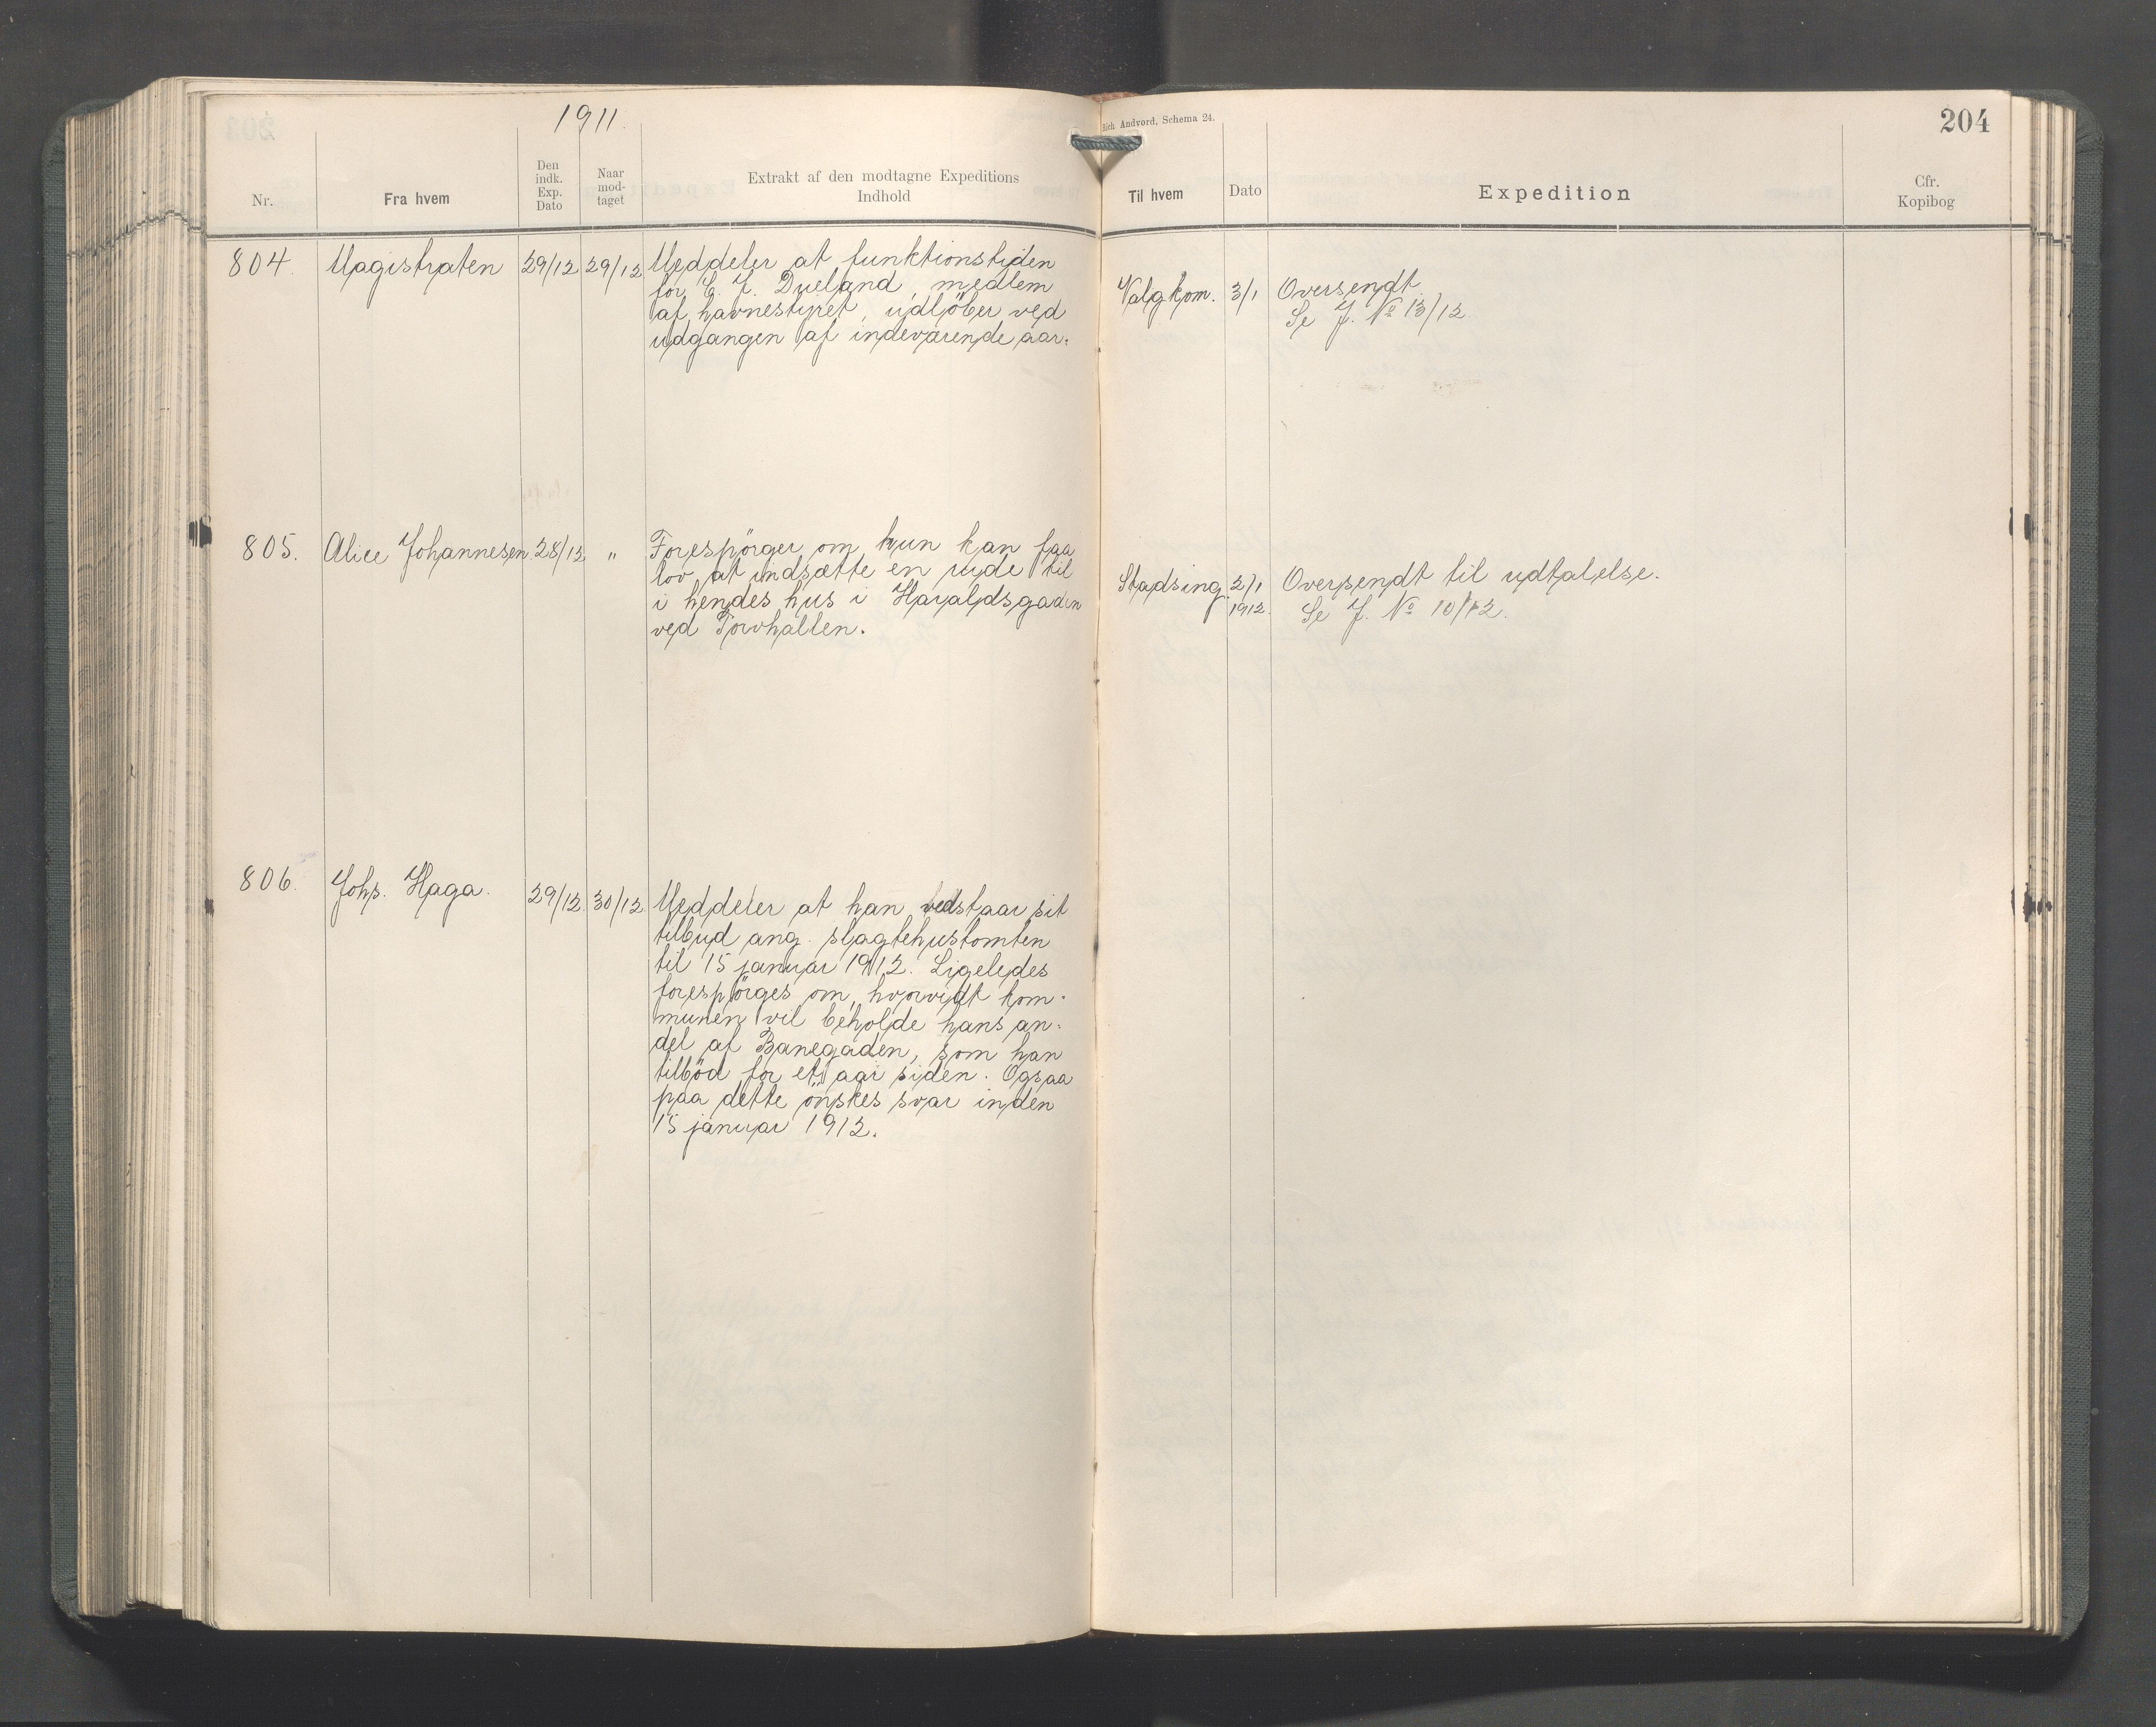 1911.
Rich Andvord, Schema 24.
204
Nr.
Fra hvem
Den indk. Exp. Dato
Naar mod- taget
Extrakt af den modtagne Expeditions Indhold
Til hvem
Dato
Expedition
Cfr. Kopibog
804. Magistraten 29/12 29/12 Meddeler at funktionstiden
for E. J. Dueland, medlem
af havnestyret, udlöber ved
udgangen af indeværende aar.
Valgkom. 3/1 Oversendt.
Se J. No 13/12.
805. Alice Johannesen 28/12 " Forespörger om hun kan faa
lov at indsætte en rude til
i hendes hus i Haraldsgaden
ved Torvhallen.
Stadsing. 2/1 Oversendt til udtalelse.
1912. Se J. No 10/12.
806. Johs. Haga. 29/12 30/12 Meddeler at han vedstaar sit
tilbud ang. slagtehustomten
til 15 januar 1912. Ligeledes
forespörges om, hvorvidt kom-
munen vil beholde hans an-
del af Banegaden, som han
tilböd for et aar siden. Ogsaa
paa dette önskes svar inden
15 januar 1912.